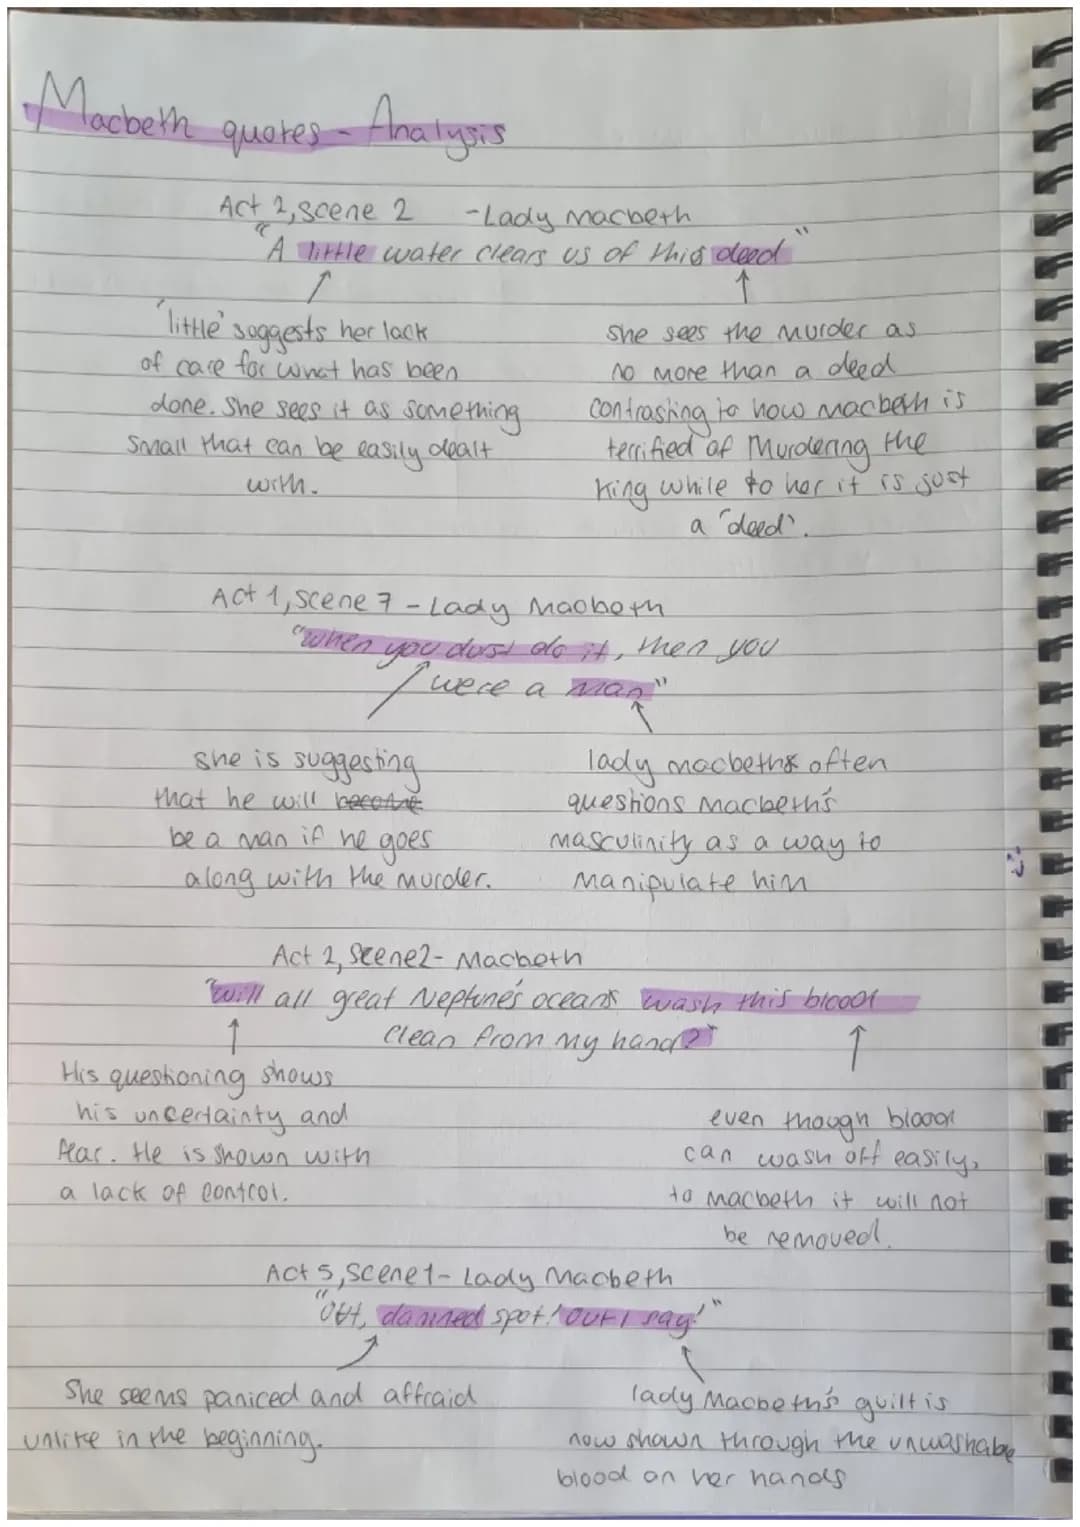 Macbeth quotes - Analysis
Act 2, scene 2 - Lady macbeth
"A little water clears us of this deed"
'little' suggests her lack
of care for what has been
done. She sees it as something
small that can be easily dealt
with.
She sees the murder as
no more than a deed
contrasting to how macbeth is
terrified of Murdering the
King while to her it is just
a 'deed'.
Act 1, scene 7 - Lady Macbeth
"when you durst do it, then you
were a man"
she is suggesting
that he will become
be a man if he goes
along with the murder.
lady macbeths often
questions Macbeth's
masculinity as a way to
manipulate him
Act 2, Scene2- Macbeth
"will all great Neptune's oceans wash this blood
clean from my hand?"
His questioning shows
his uncertainty and
fear. He is shown with
a lack of control.
even though blood
can wash off easily,
to macbeth it will not
be removed.
Act 5, Scene1- Lady Macbeth
"Out, damned spot! Out I say!"
She seems paniced and affraid
unlike in the beginning.
lady Macbeth's guilt is
now shown through the unwashabe
blood on her hands